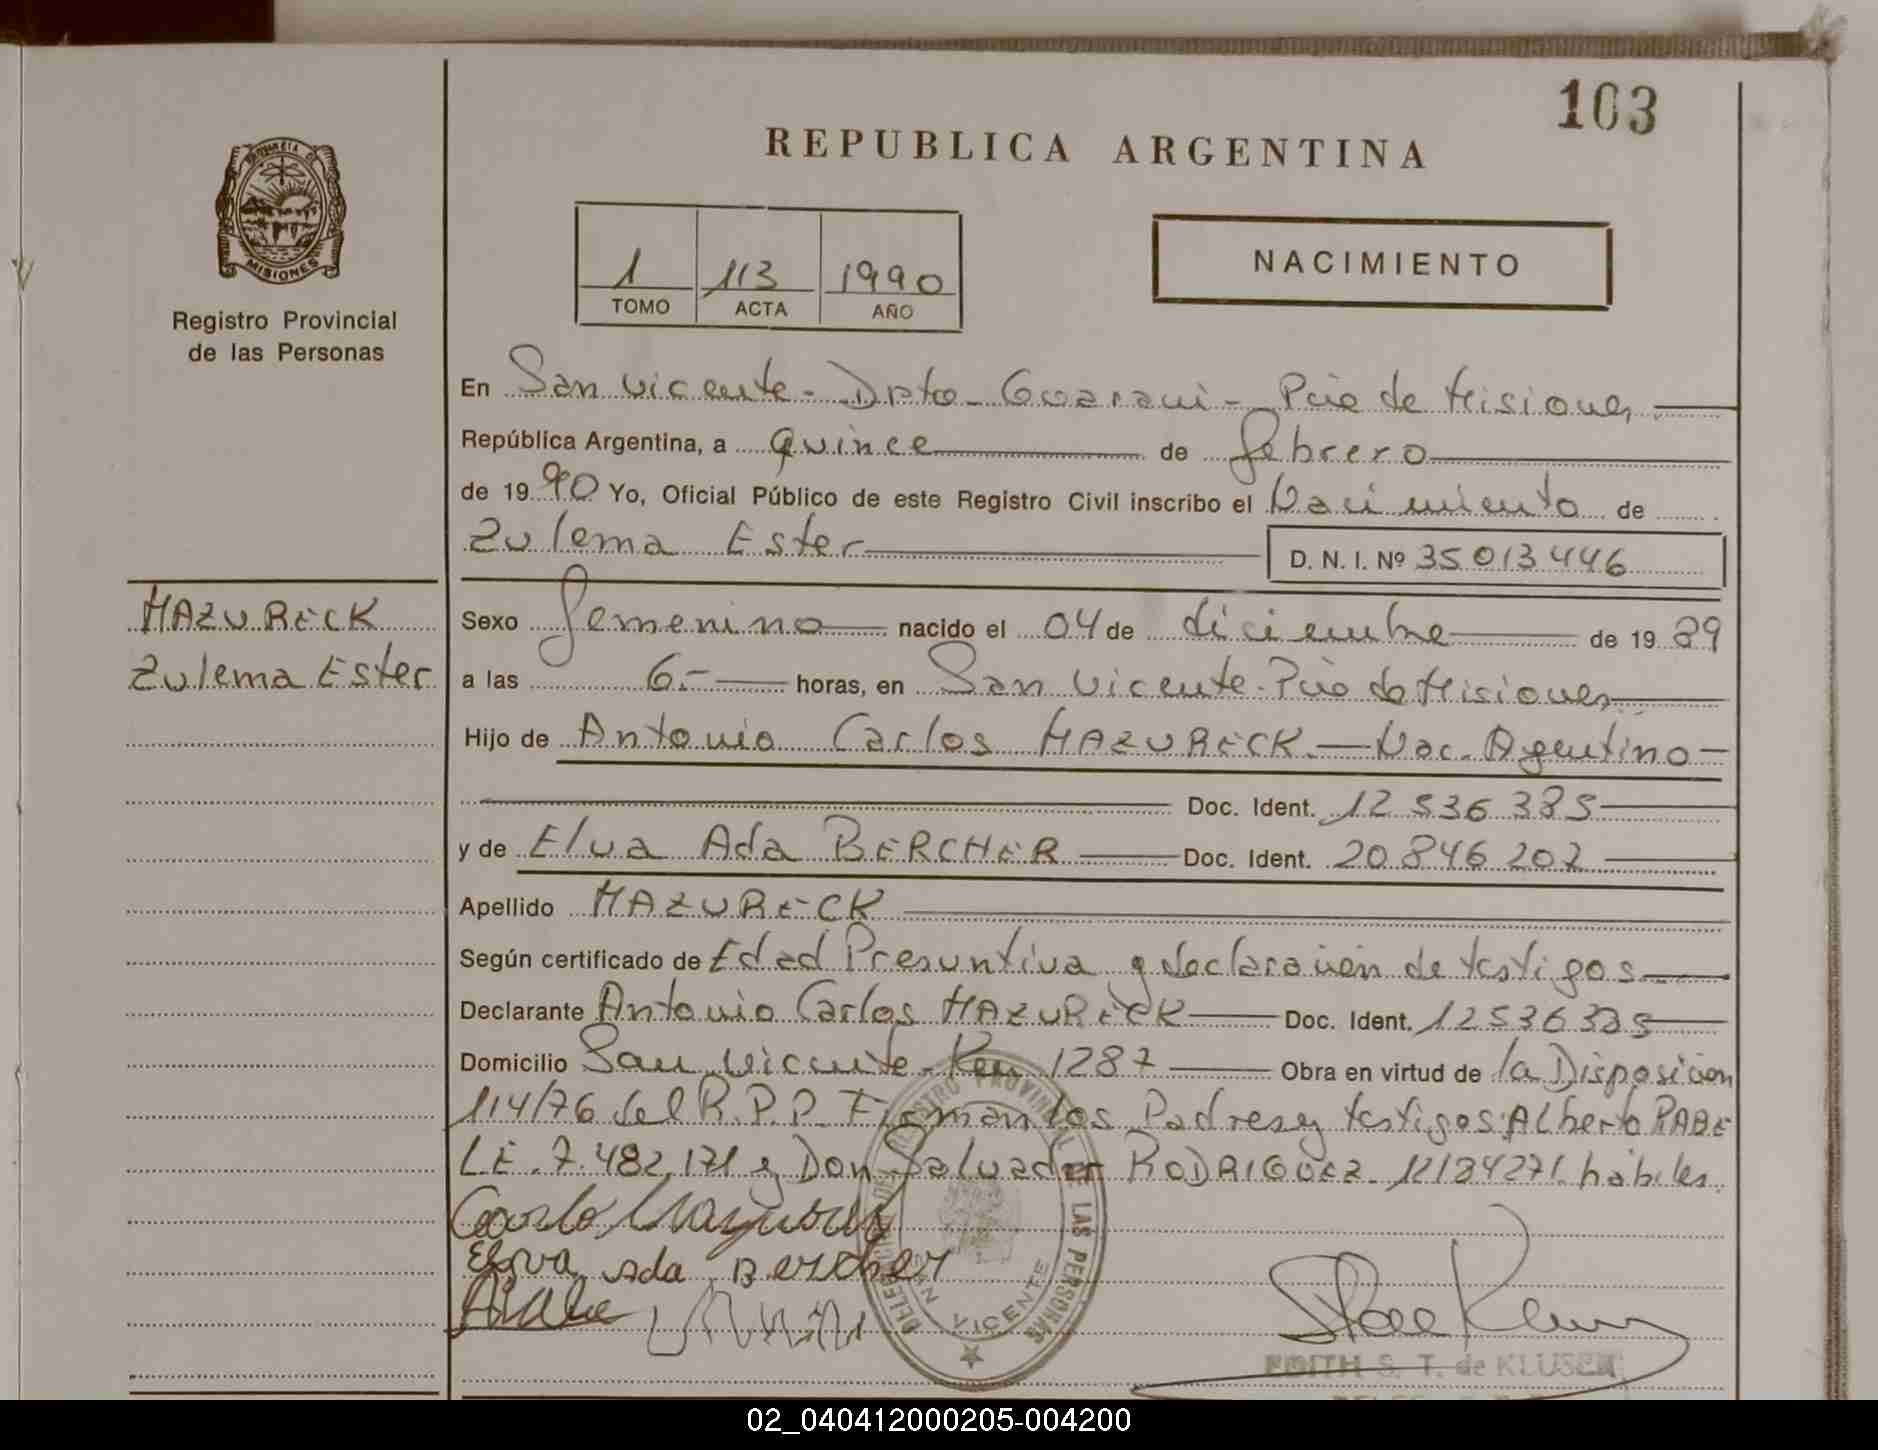 103
REPUBLICA ARGENTINA
PROVINCIA DE
MISIONES
Registro Provincial
de las Personas
1 113 1990
TOMO ACTA AÑO
NACIMIENTO
En San Vicente - Dpto - Guarani - Pcia de Misiones
República Argentina, a quince de febrero
de 1990 Yo, Oficial Público de este Registro Civil inscribo el Nacimiento de
Zulema Ester D. N. I. Nº 35 013 446
MAZURECK
Zulema Ester
Sexo femenino nacido el 04 de diciembre de 1989
a las 6.- horas, en San Vicente - Pcia de Misiones
Hijo de Antonio Carlos MAZURECK - Nac. Agentino -
Doc. Ident. 12 536 385
y de Elva Ada BERCHER Doc. Ident. 20 846 202
Apellido MAZURECK
Según certificado de Edad Presuntiva y declaración de testigos
Declarante Antonio Carlos MAZURECK Doc. Ident. 12536385
Domicilio San Vicente - Km 1287 Obra en virtud de la Disposicion
114/76 del R.P.P. Firman los Padres y testigos: Alberto RABE
L.E. 7.482,171 y Don Salvador RODRIGUEZ - 12184271. hábiles.
Elva Ada Bercher
DELEGACION DEL REGISTRO PROVINCIAL DE LAS PERSONAS
SAN VICENTE
EDITH S. T. de KLUSER
02_040412000205-004200